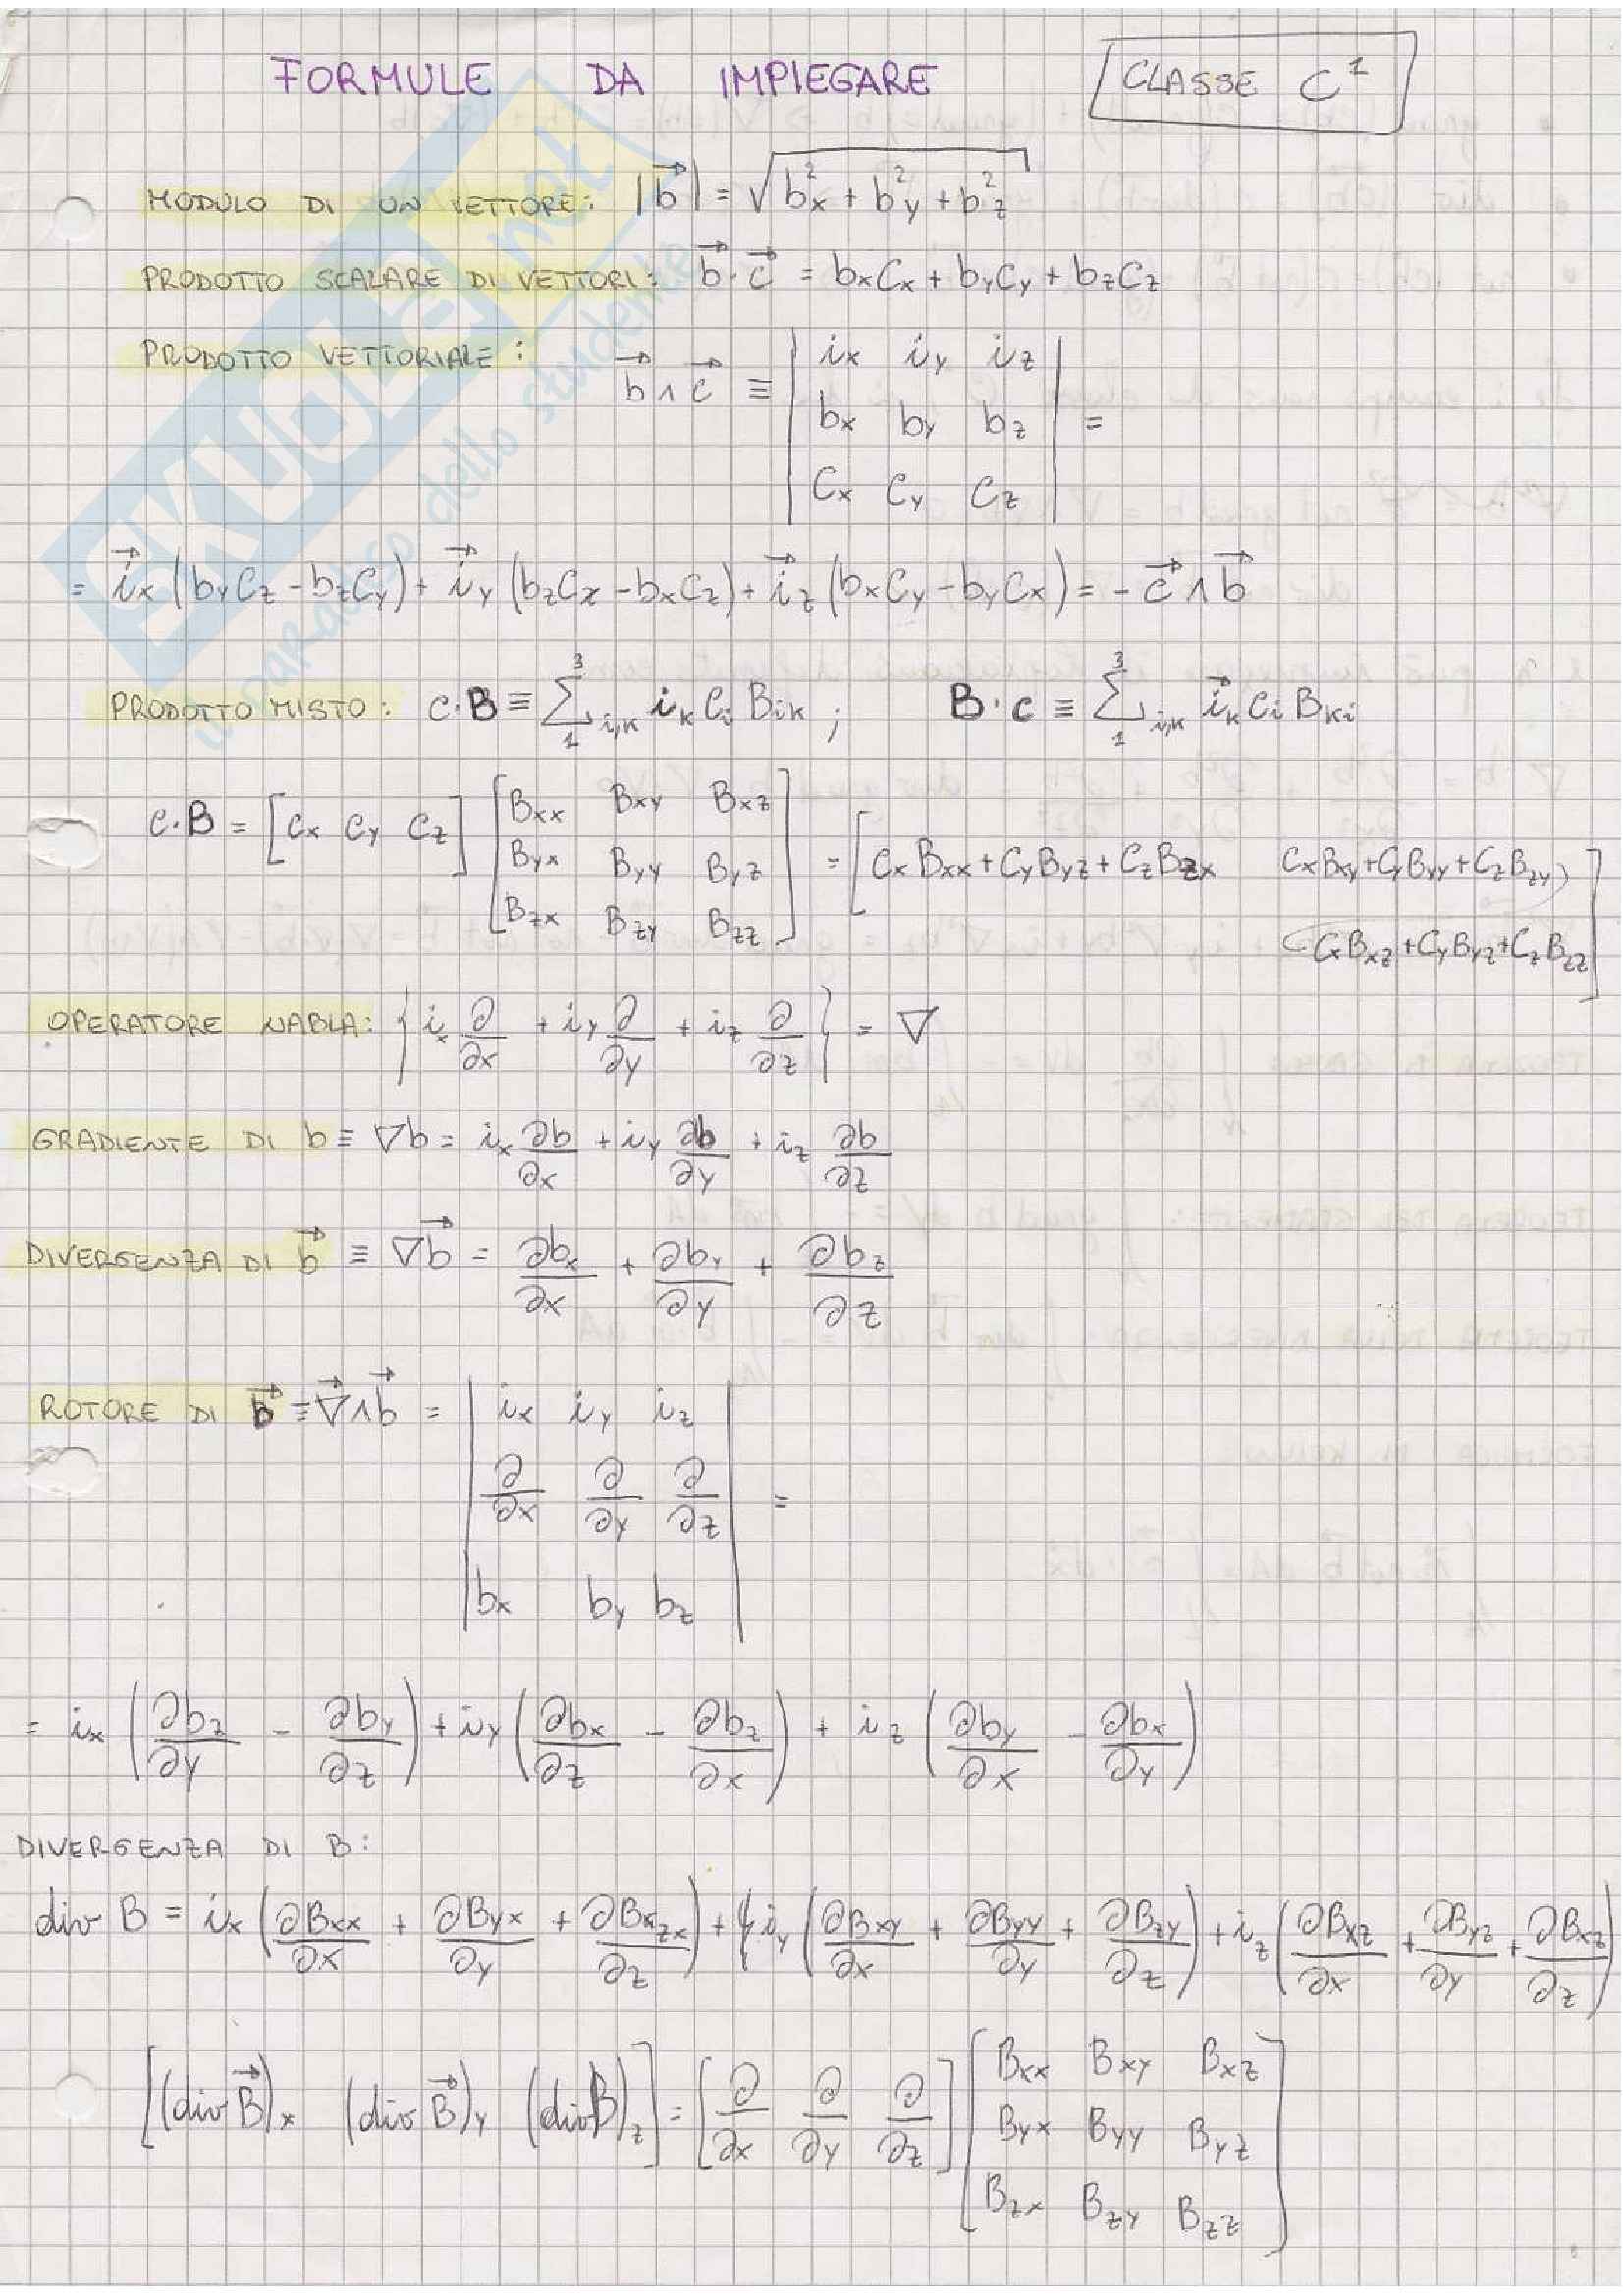 FORMULE DA IMPIEGARE
CLASSE C¹
MODULO DI UN VETTORE: |b⃗| = √(b²ₓ + b²_y + b²_z)
PRODOTTO SCALARE DI VETTORI: b⃗ · c⃗ = bₓCₓ + b_yC_y + b_zC_z
PRODOTTO VETTORIALE: b⃗ ∧ c⃗ ≡ | iₓ i_y i_z |
| bₓ b_y b_z | =
| Cₓ C_y C_z |
= i⃗ₓ (b_yC_z - b_zC_y) + i⃗_y (b_zCₓ - bₓC_z) + i⃗_z (bₓC_y - b_yCₓ) = - c⃗ ∧ b⃗
PRODOTTO MISTO: c · B ≡ Σ³₁ i,k i_k C_i B_ik ; B · c ≡ Σ³₁ i,k i⃗_k C_i B_ki
c · B = [cₓ c_y c_z] [Bxx Bxy Bxz
Byx Byy Byz
Bzx Bzy Bzz] = [CₓBxx + C_yByz + C_zBzx CₓBxy + C_yByy + C_zBzy)
CₓBxz + C_yByz + C_zBzz]
OPERATORE NABLA: { iₓ ∂/∂x + i_y ∂/∂y + i_z ∂/∂z } = ∇
GRADIENTE DI b ≡ ∇b = iₓ ∂b/∂x + i_y ∂b/∂y + i_z ∂b/∂z
DIVERGENZA DI b⃗ ≡ ∇b⃗ = ∂bₓ/∂x + ∂b_y/∂y + ∂b_z/∂z
ROTORE DI b⃗ ≡ ∇⃗ ∧ b⃗ = | iₓ i_y i_z |
| ∂/∂x ∂/∂y ∂/∂z | =
| bₓ b_y b_z |
= iₓ (∂b_z/∂y - ∂b_y/∂z) + i_y (∂bₓ/∂z - ∂b_z/∂x) + i_z (∂b_y/∂x - ∂bₓ/∂y)
DIVERGENZA DI B:
div B = iₓ (∂Bxx/∂x + ∂Byx/∂y + ∂Bzx/∂z) + i_y (∂Bxy/∂x + ∂Byy/∂y + ∂Bzy/∂z) + i_z (∂Bxz/∂x + ∂Byz/∂y + ∂Bxz/∂z)
[(div B⃗)ₓ (div B⃗)_y (div B)_z] = [∂/∂x ∂/∂y ∂/∂z] [Bxx Bxy Bxz
Byx Byy Byz
Bzx Bzy Bzz]
SKUOLA.net
il paradiso dello studente